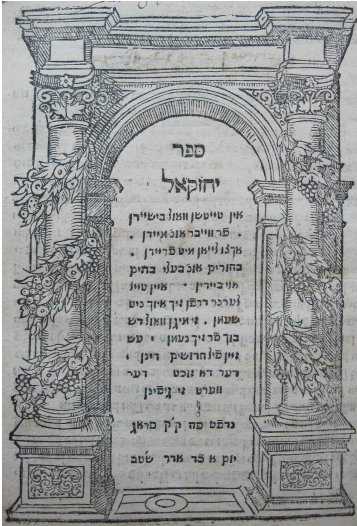 ספר
יחזקאל
אין טייטשן וואול בישיידן
. פר ווייבר אונ מיידן .
אך צו לייאן מיט פריידן .
בחורים אונ בעלי בתים
ביידן . איין טייל
דרפן זיך אויך ניט
שעמן . זי מיגן וואול דש
בוך פר זיך נעמן . עש
איין פיל חדושים דינן .
דער דא זוכט דער
ווערט זי גיפינן
נדפס פה ק"ק פראג
יום א אדר